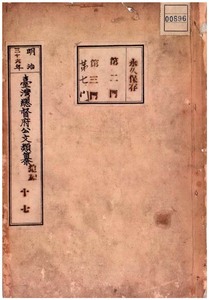 00896
永久保存
第二門
第三門
第七門
明治
三十六年
臺灣總督府公文類纂
十七